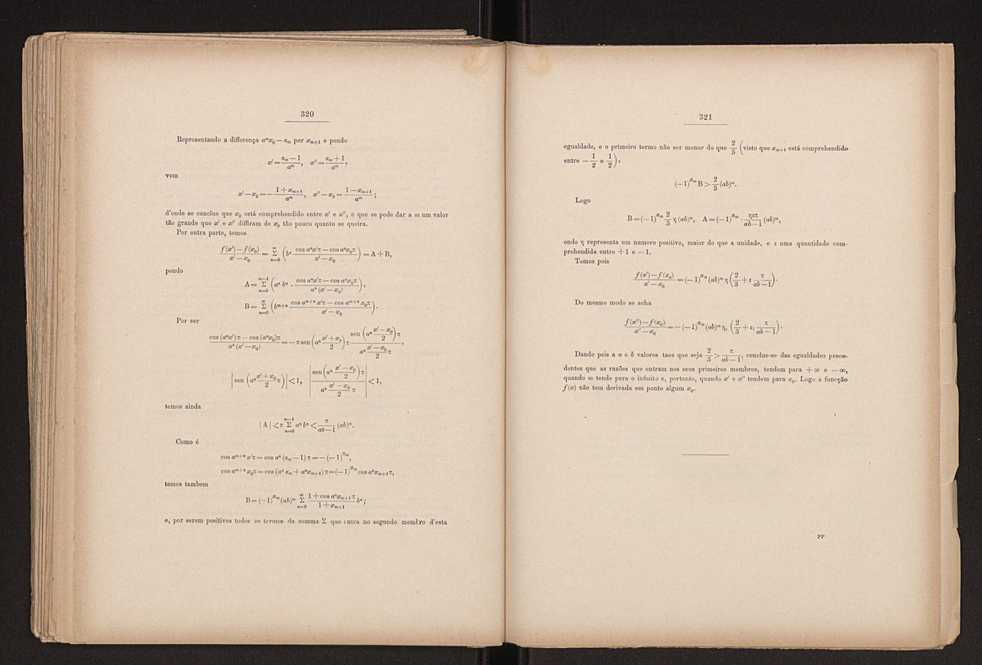 320
Representando a differença aᵐx₀ — αₘ por xₘ₊₁ e pondo
x' = (αₘ — 1)/aᵐ, x'' = (αₘ + 1)/aᵐ,
vem
x' — x₀ = — (1 + xₘ₊₁)/aᵐ, x'' — x₀ = (1 — xₘ₊₁)/aᵐ;
d'onde se conclue que x₀ está comprehendido entre x' e x'', e que se pode dar a m um valor
tão grande que x' e x'' diffiram de x₀ tão pouco quanto se queira.
Por outra parte, temos
(f(x') — f(x₀))/(x' — x₀) = Σ_{n=0}^{∞} (bⁿ · (cos aⁿx'π — cos aⁿx₀π)/(x' — x₀)) = A + B,
pondo
A = Σ_{n=0}^{m—1} (aⁿ bⁿ · (cos aⁿx'π — cos aⁿx₀π)/(aⁿ (x' — x₀))),
B = Σ_{n=0}^{∞} (bᵐ⁺ⁿ (cos aᵐ⁺ⁿ x'π — cos aᵐ⁺ⁿ x₀π)/(x' — x₀)).
Por ser
(cos (aⁿx')π — cos (aⁿx₀)π)/(aⁿ (x' — x₀)) = — π sen (aⁿ (x' + x₀)/2) π · sen (aⁿ (x' — x₀)/2) π / (aⁿ (x' — x₀)/2 π),
|sen (aⁿ (x' + x₀)/2 π)| < 1, |sen (aⁿ (x' — x₀)/2) π / (aⁿ (x' — x₀)/2 π)| < 1,
temos ainda
| A | < π Σ_{n=0}^{m—1} aⁿ bⁿ < π/(ab — 1) (ab)ᵐ.
Como é
cos aᵐ⁺ⁿ x'π = cos aⁿ (αₘ — 1) π = — (— 1)^{αₘ},
cos aᵐ⁺ⁿ x₀π = cos (aⁿ αₘ + aⁿxₘ₊₁) π = (— 1)^{αₘ} cos aⁿxₘ₊₁π,
temos tambem
B = (— 1)^{αₘ} (ab)ᵐ Σ_{n=0}^{∞} (1 + cos aⁿxₘ₊₁π)/(1 + xₘ₊₁) bⁿ;
e, por serem positivos todos os termos da somma Σ que entra no segundo membro d'esta
321
egualdade, e o primeiro termo não ser menor do que 2/3 (visto que xₘ₊₁ está comprehendido
entre — 1/2 e 1/2):
(— 1)^{αₘ} B > 2/3 (ab)ᵐ.
Logo
B = (— 1)^{αₘ} 2/3 η (ab)ᵐ, A = (— 1)^{αₘ} · ηεπ/(ab — 1) (ab)ᵐ,
onde η representa um numero positivo, maior do que a unidade, e ε uma quantidade com-
prehendida entre + 1 e — 1.
Temos pois
(f(x') — f(x₀))/(x' — x₀) = (— 1)^{αₘ} (ab)ᵐ η (2/3 + ε π/(ab — 1)).
Do mesmo modo se acha
(f(x'') — f(x₀))/(x'' — x₀) = — (— 1)^{αₘ} (ab)ᵐ η₁ (2/3 + ε₁ π/(ab — 1)).
Dando pois a a e b valores taes que seja 2/3 > π/(ab — 1), conclue-se das egualdades prece-
dentes que as razões que entram nos seus primeiros membros, tendem para + ∞ e — ∞,
quando m tende para o infinito e, portanto, quando x' e x'' tendem para x₀. Logo a funcção
f(x) não tem derivada em ponto algum x₀.